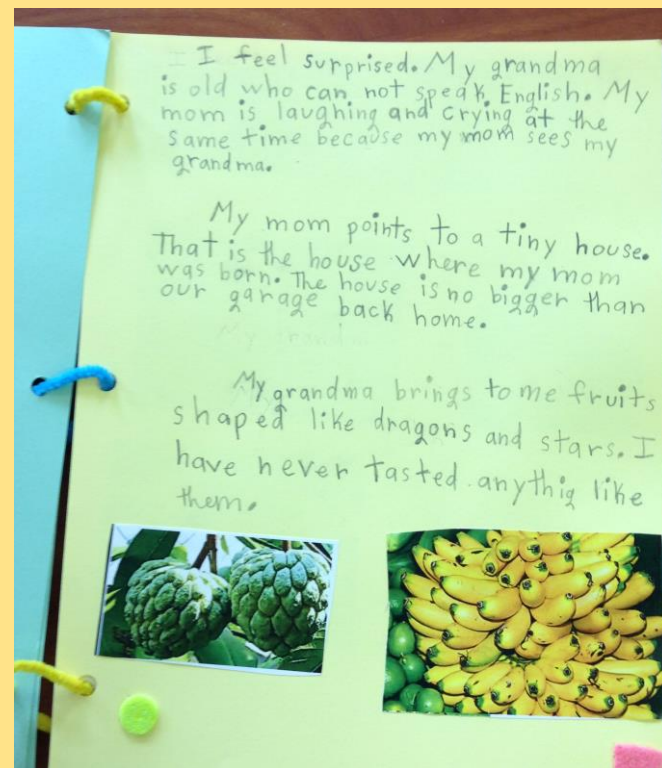 I feel surprised. My grandma
is old who can not speak English. My
mom is laughing and crying at the
same time because my mom sees my
grandma.
My mom points to a tiny house.
That is the house where my mom
was born. The house is no bigger than
our garage back home.
My grandma brings to me fruits
shaped like dragons and stars. I
have never tasted anythig like
them.